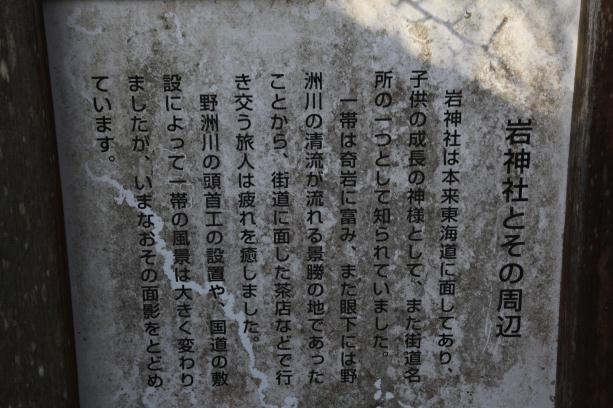 岩神社とその周辺
岩神社は本来東海道に面してあり、
子供の成長の神様として、また街道名
所の一つとして知られていました。
一帯は奇岩に富み、また眼下には野
洲川の清流が流れる景勝の地であった
ことから、街道に面した茶店などで行
き交う旅人は疲れを癒しました。
野洲川の頭首工の設置や、国道の敷
設によって一帯の風景は大きく変わり
ましたが、いまなおその面影をとどめ
ています。